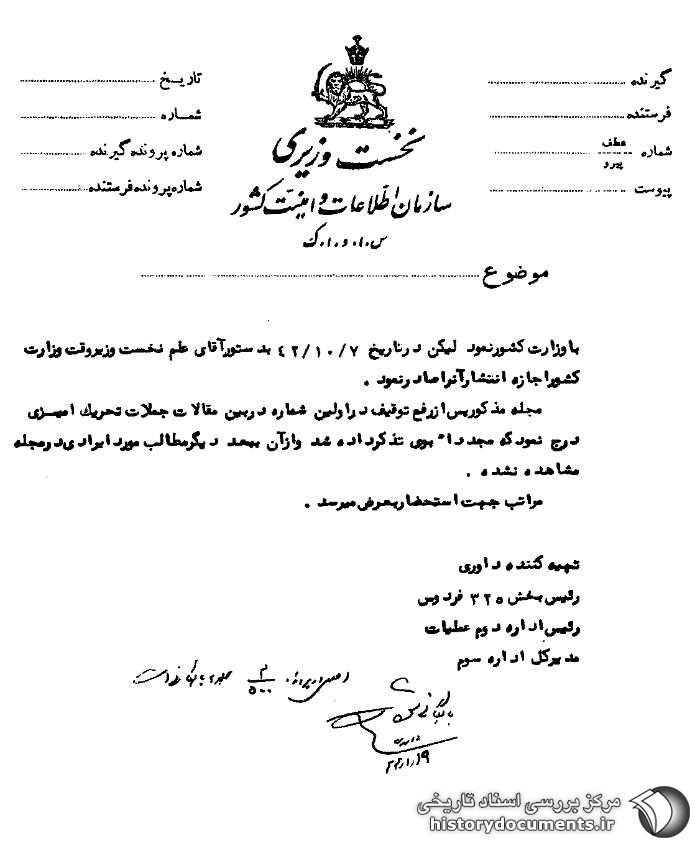 گیرنده
فرستنده
شماره عطف
پیرو
پیوست
نخست وزیری
سازمان اطلاعات و امنیت کشور
س.ا.و.ا.ک
تاریخ
شماره
شماره پرونده گیرنده
شماره پرونده فرستنده
موضوع
با وزارت کشور نمود لیکن در تاریخ ۴۲/۱۰/۷ بدستور آقای علم نخست وزیر وقت وزارت
کشور اجازه انتشار آنرا صادر نمود .
مجله مذکور پس از رفع توقیف در اولین شماره در بین مقالات جملات تحریک آمیزی
درج نمود که مجددا" بوی تذکر داده شد و از آن ببعد دیگر مطالب مورد ایرادی در مجله
مشاهده نشده .
مراتب جهت استحضار بعرض میرسد .
تهیه کننده داوری
رئیس بخش ۳۲۵ فردوس
رئیس اداره دوم عملیات
مدیر کل اداره سوم
مرکز بررسی اسناد تاریخی
historydocuments.ir